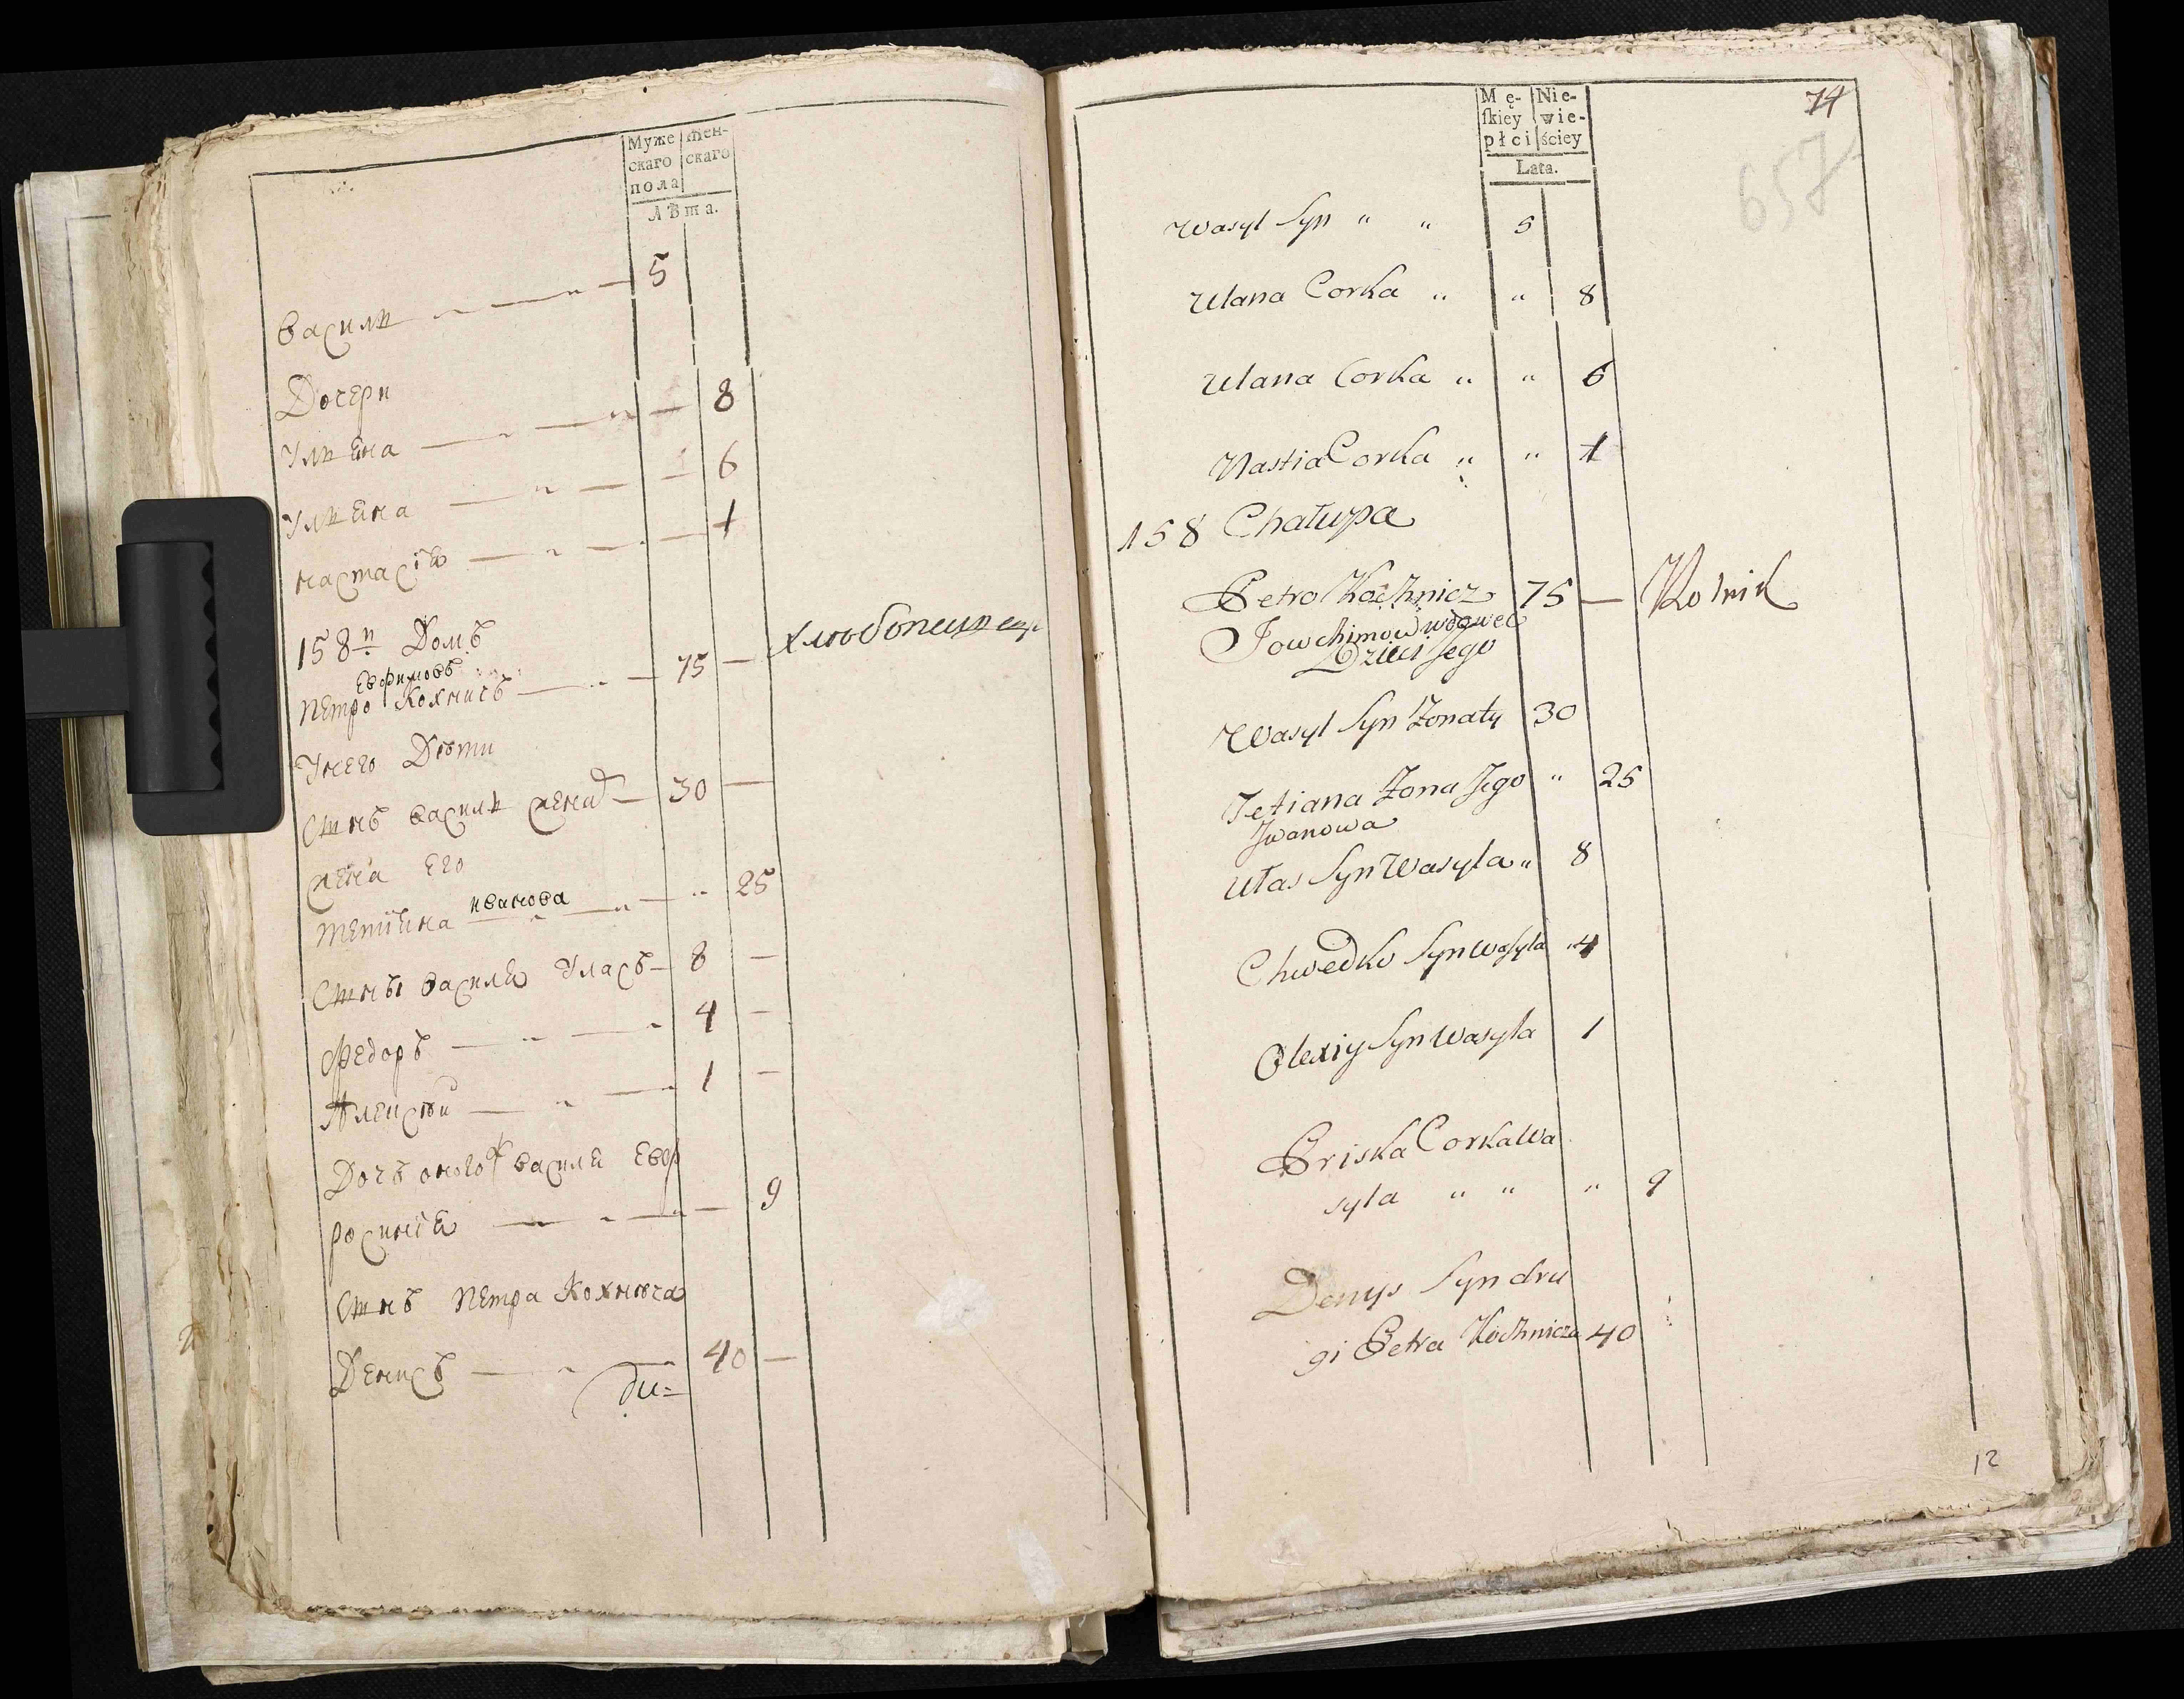 Муже скаго пола
Жен- скаго
Лѣта.
Василь 5
Дочери
Ульяна 8
Ульяна 6
Настасія 1
158й Домъ
Евфимовъ
Петро Кохничъ 75 — хлѣбопашецъ
У него Дѣти
Сынъ Василь женатъ 30 —
Жена Его
Иванова
Тетіяна " 25
Сыны Василя Уласъ 8 —
Федоръ 4 —
Алексѣй 1 —
Дочь оногож Василя Евф
росинія 9
Сынъ Петра Кохнича
Денисъ 40 —
Mę- skiey płci
Nie- wie- ściey
Lata.
74
657
Wasyl Syn " " 5
Ulana Corka " " 8
Ulana Corka " " 6
Nastia Corka " " 1
158 Chałupa
Petro Kochnicz 75 — Rolnik
Jowchimow wdowec
Dzieci Jego
Wasyl Syn Żonaty 30
Tetiana Żona Jego " 25
Jwanowa
Ułas Syn Wasyla " 8
Chwedko Syn Wasyla " 4
Olexiy Syn Wasyla 1
Priska Corka Wa
syla " " " 9
Denys Syn dru
gi Petra Kochnicza 40
12